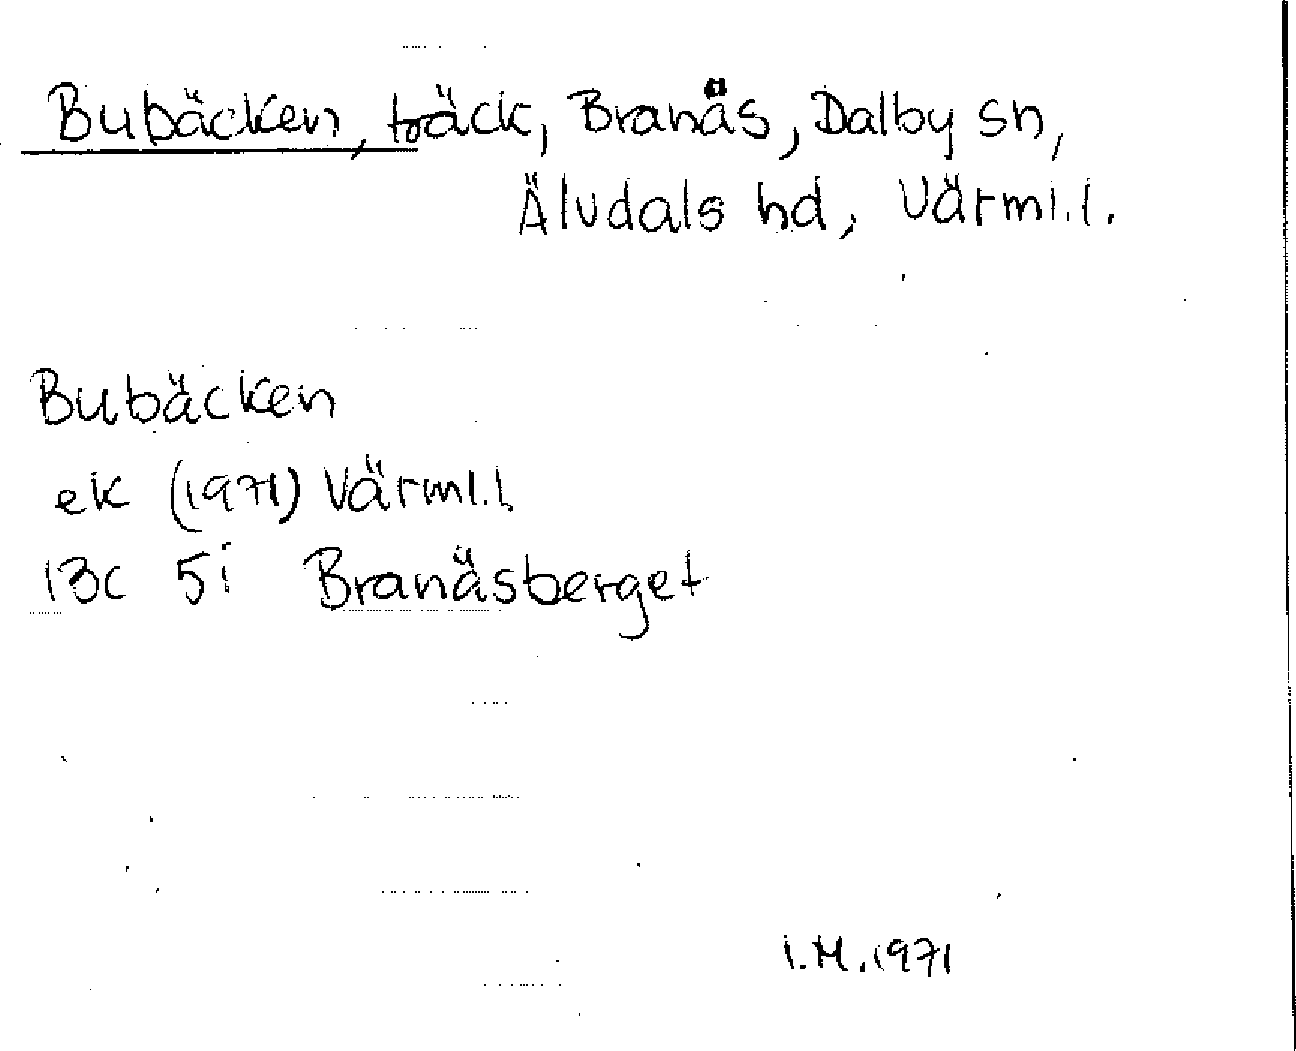 Bubäcken, bäck, Branäs, Dalby sn,
Älvdals hd, Värml.l.
Bubäcken
ek (1971) Värml.l.
13c 5i Branäsberget
I.M.1971